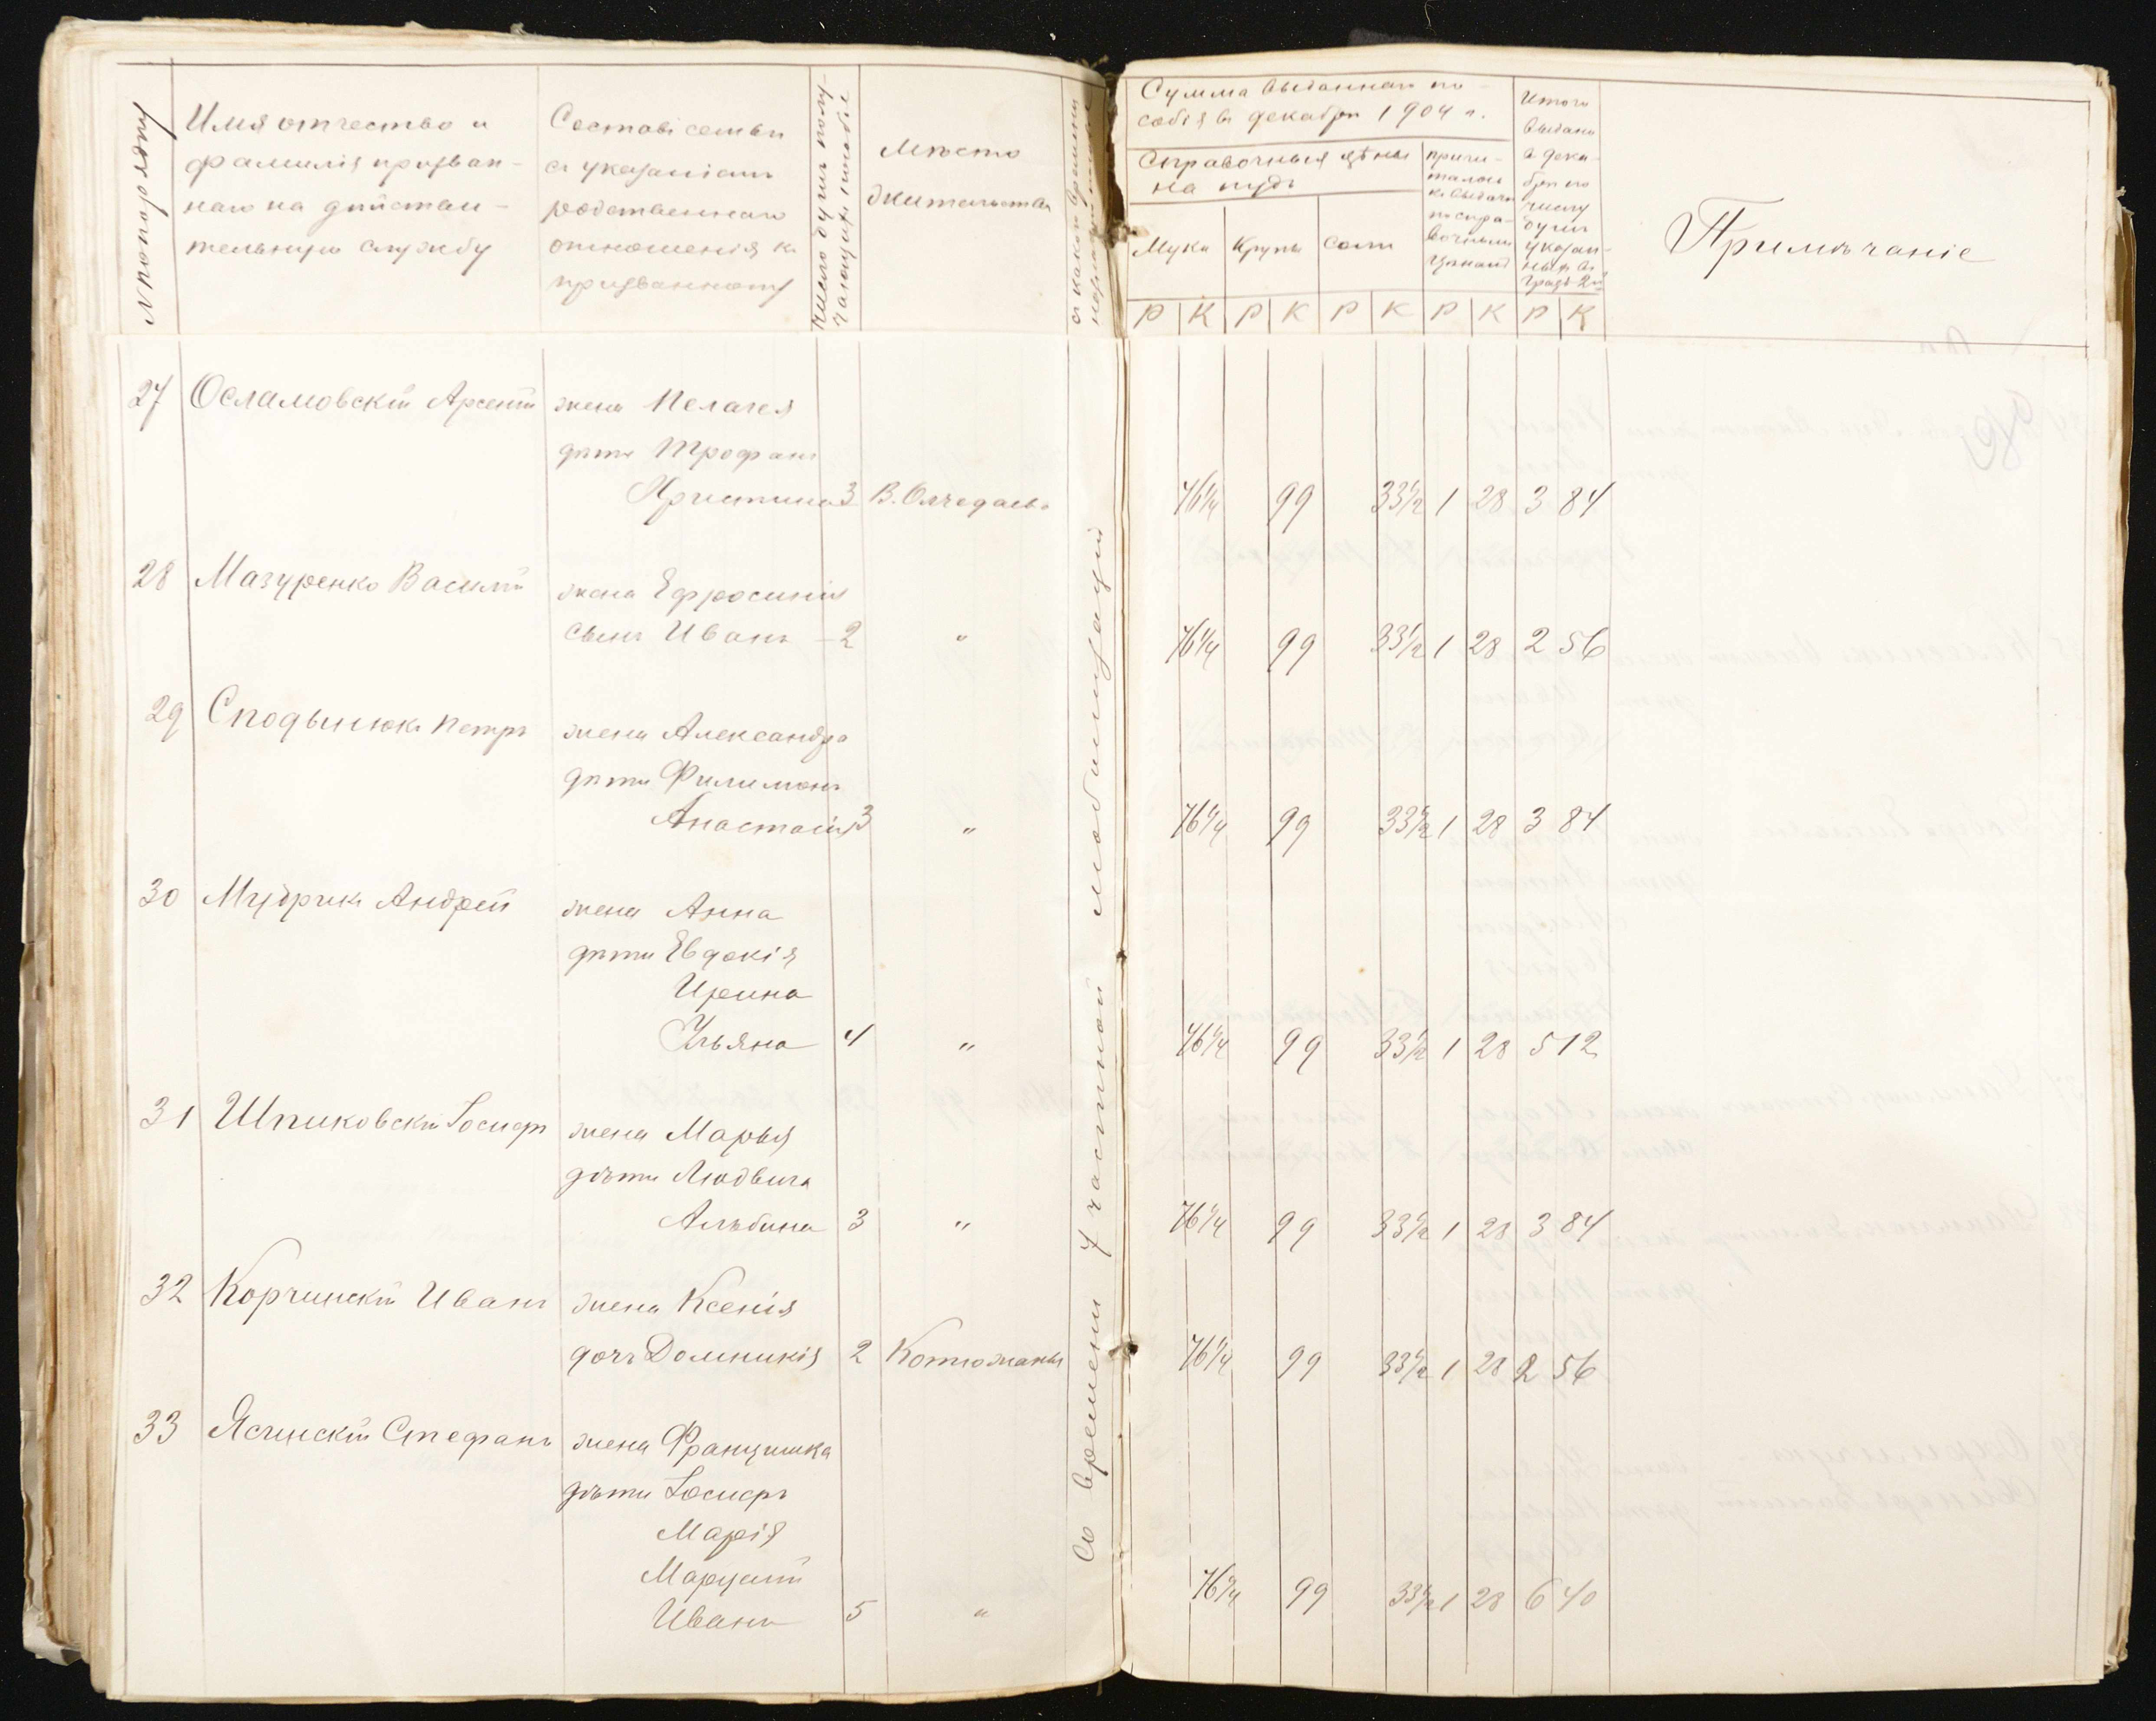 № по порядку
Имя отчество и
фамилія призван-
наго на дѣйстви-
тельную службу
Составъ семьи
съ указаніемъ
родственнаго
отношенія къ
призванному
Число душъ полу-
чающихъ пособіе
Мѣсто
жительства
съ какого времени
Сумма выданнаго по-
собія въ декабрѣ 1904 г.
Справочныя цѣны
на пудъ
Мука Крупы Соли
причи-
талось
къ выдачѣ
по спра-
вочнымъ
цѣнамъ
Итого
выдано
въ дека-
брѣ по
числу
душъ
указан-
ныхъ въ
графѣ 2й
Примѣчаніе
Р К Р К Р К Р К Р К
27 Осламовскій Арсентій жена Пелагея
дѣти Трофимъ
Христина 3 В. Олчедаевъ 76 1/4 99 33 1/2 1 28 3 84
28 Мазуренко Василій жена Ефросинія
сынъ Иванъ - 2 " 76 1/4 99 33 1/2 1 28 2 56
29 Сподынюкъ Петръ жена Александра
дѣти Филимонъ
Анастасія 3 " 76 1/4 99 33 1/2 1 28 3 84
30 Мудрикъ Андрей жена Анна
дѣти Евдокія
Ирина
Ульяна 4 " 76 1/4 99 33 1/2 1 28 5 12
31 Шпиковскій Іосифъ жена Марья
дѣти Людвига
Альбина 3 " 76 1/4 99 33 1/2 1 28 3 84
32 Корчинскій Иванъ жена Ксенія
дочь Домникія 2 Котюжаны 76 1/4 99 33 1/2 1 28 2 56
33 Ясинскій Стефанъ жена Францишка
дѣти Іосифъ
Марія
Марцелій
Иванъ 5 " 76 1/4 99 33 1/2 1 28 6 40
Со времени 7 частной мобилизаціи